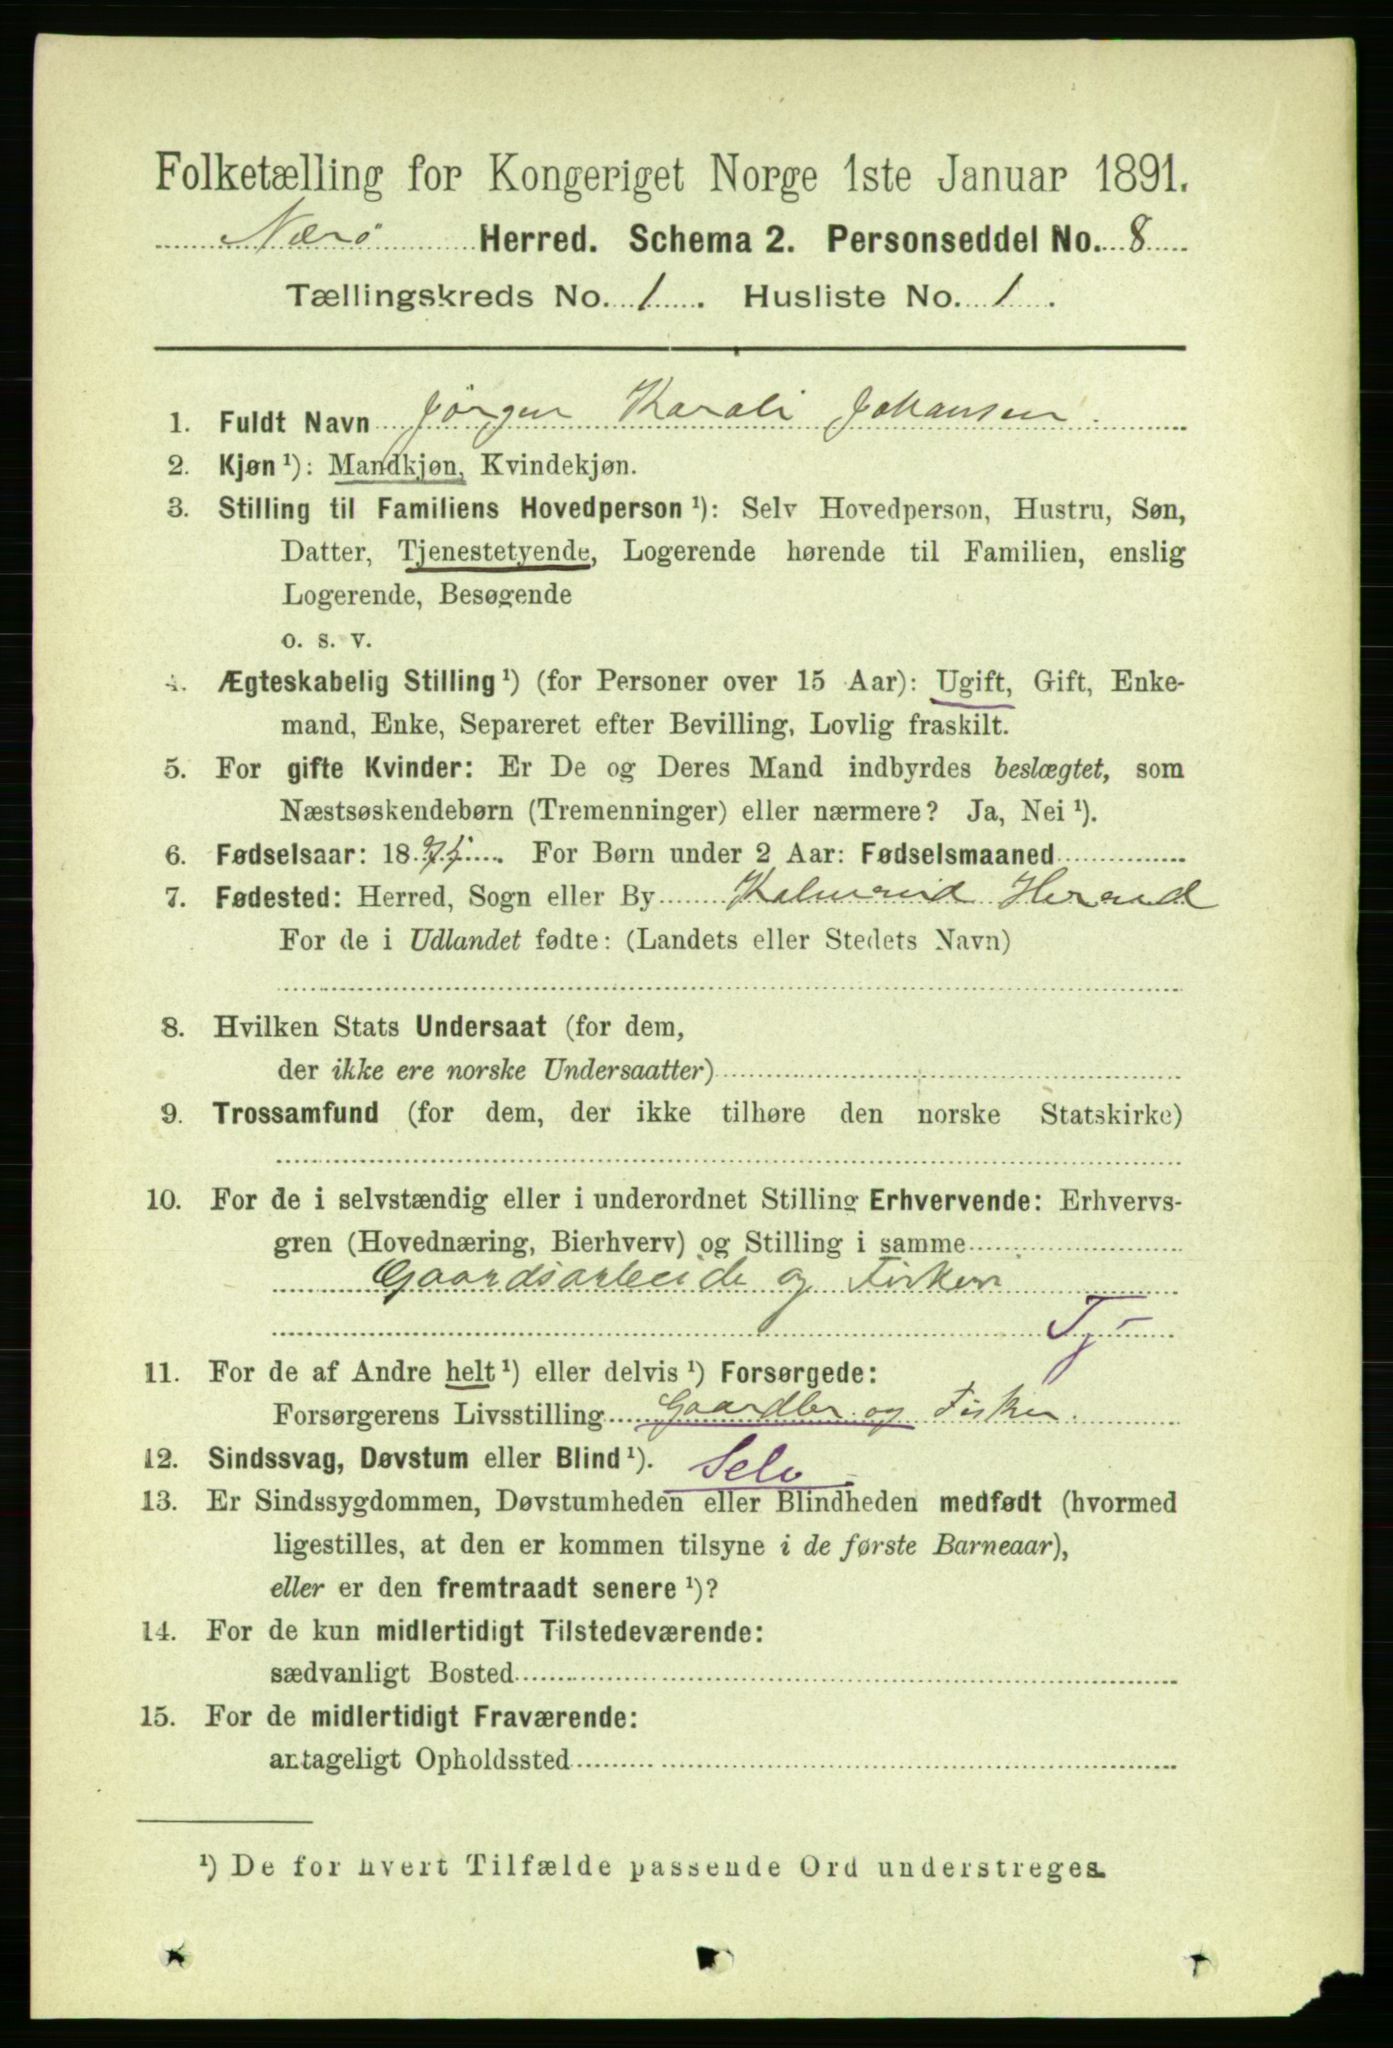 Folketælling for Kongeriget Norge 1ste Januar 1891.
Nærø Herred. Schema 2. Personseddel No. 8
Tællingskreds No. 1. Husliste No. 1.
1. Fuldt Navn Jörgen Johansen
2. Kjøn ¹): Mandkjøn, Kvindekjøn.
3. Stilling til Familiens Hovedperson ¹): Selv Hovedperson, Hustru, Søn,
Datter, Tjenestetyende, Logerende hørende til Familien, enslig
Logerende, Besøgende
o. s. v.
4. Ægteskabelig Stilling ¹) (for Personer over 15 Aar): Ugift, Gift, Enke-
mand, Enke, Separeret efter Bevilling, Lovlig fraskilt.
5. For gifte Kvinder: Er De og Deres Mand indbyrdes beslægtet, som
Næstsøskendebørn (Tremenninger) eller nærmere? Ja, Nei ¹).
6. Fødselsaar: 18 For Børn under 2 Aar: Fødselsmaaned
7. Fødested: Herred, Sogn eller By Kolvereid Herred
For de i Udlandet fødte: (Landets eller Stedets Navn)
8. Hvilken Stats Undersaat (for dem,
der ikke ere norske Undersaatter)
9. Trossamfund (for dem, der ikke tilhøre den norske Statskirke)
10. For de i selvstændig eller i underordnet Stilling Erhvervende: Erhvervs-
gren (Hovednæring, Bierhverv) og Stilling i samme
Gaardsarbeide og Fiskeri
Tj-
11. For de af Andre helt ¹) eller delvis ¹) Forsørgede:
Forsørgerens Livsstilling Gaardbr. og Fisker.
12. Sindssvag, Døvstum eller Blind ¹). Selv.
13. Er Sindssygdommen, Døvstumheden eller Blindheden medfødt (hvormed
ligestilles, at den er kommen tilsyne i de første Barneaar),
eller er den fremtraadt senere ¹)?
14. For de kun midlertidigt Tilstedeværende:
sædvanligt Bosted
15. For de midlertidigt Fraværende:
antageligt Opholdssted
¹) De for hvert Tilfælde passende Ord understreges.